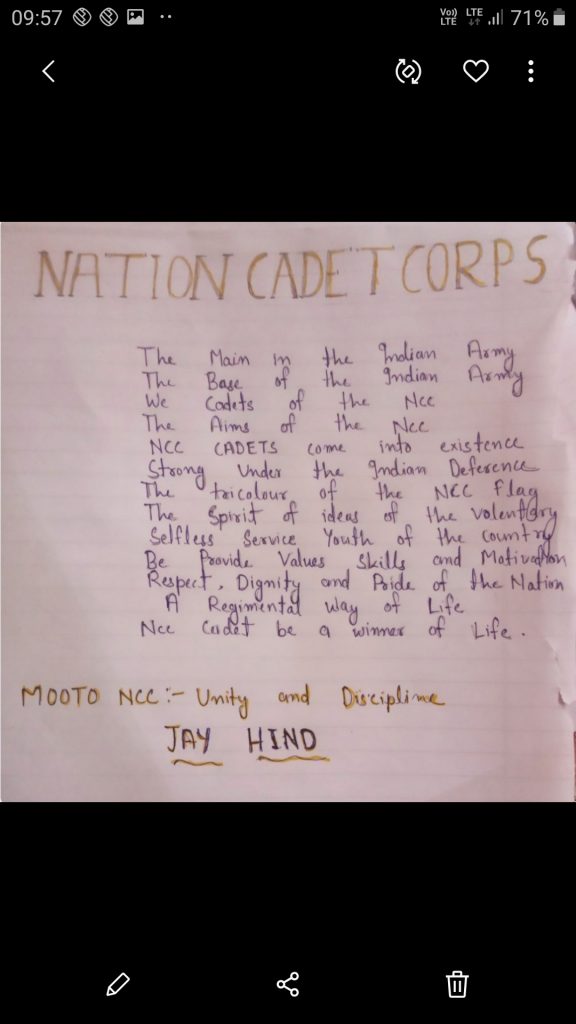 09:57
Vo)) LTE LTE 71%
NATION CADET CORPS
The Main in the Indian Army
The Base of the Indian Army
We Cadets of the Ncc
The Aims of the Ncc
NCC CADETS come into existence
Strong Under the Indian Deference
The tricolour of the NCC Flag
The Spirit of ideas of the volentary
Selfless Service Youth of the Country
Be Provide Values Skills and Motivation
Respect, Dignity and Pride of the Nation
A Regimental Way of Life
Ncc Cadet be a winner of Life.
MOOTO NCC :- Unity and Discipline
JAY HIND